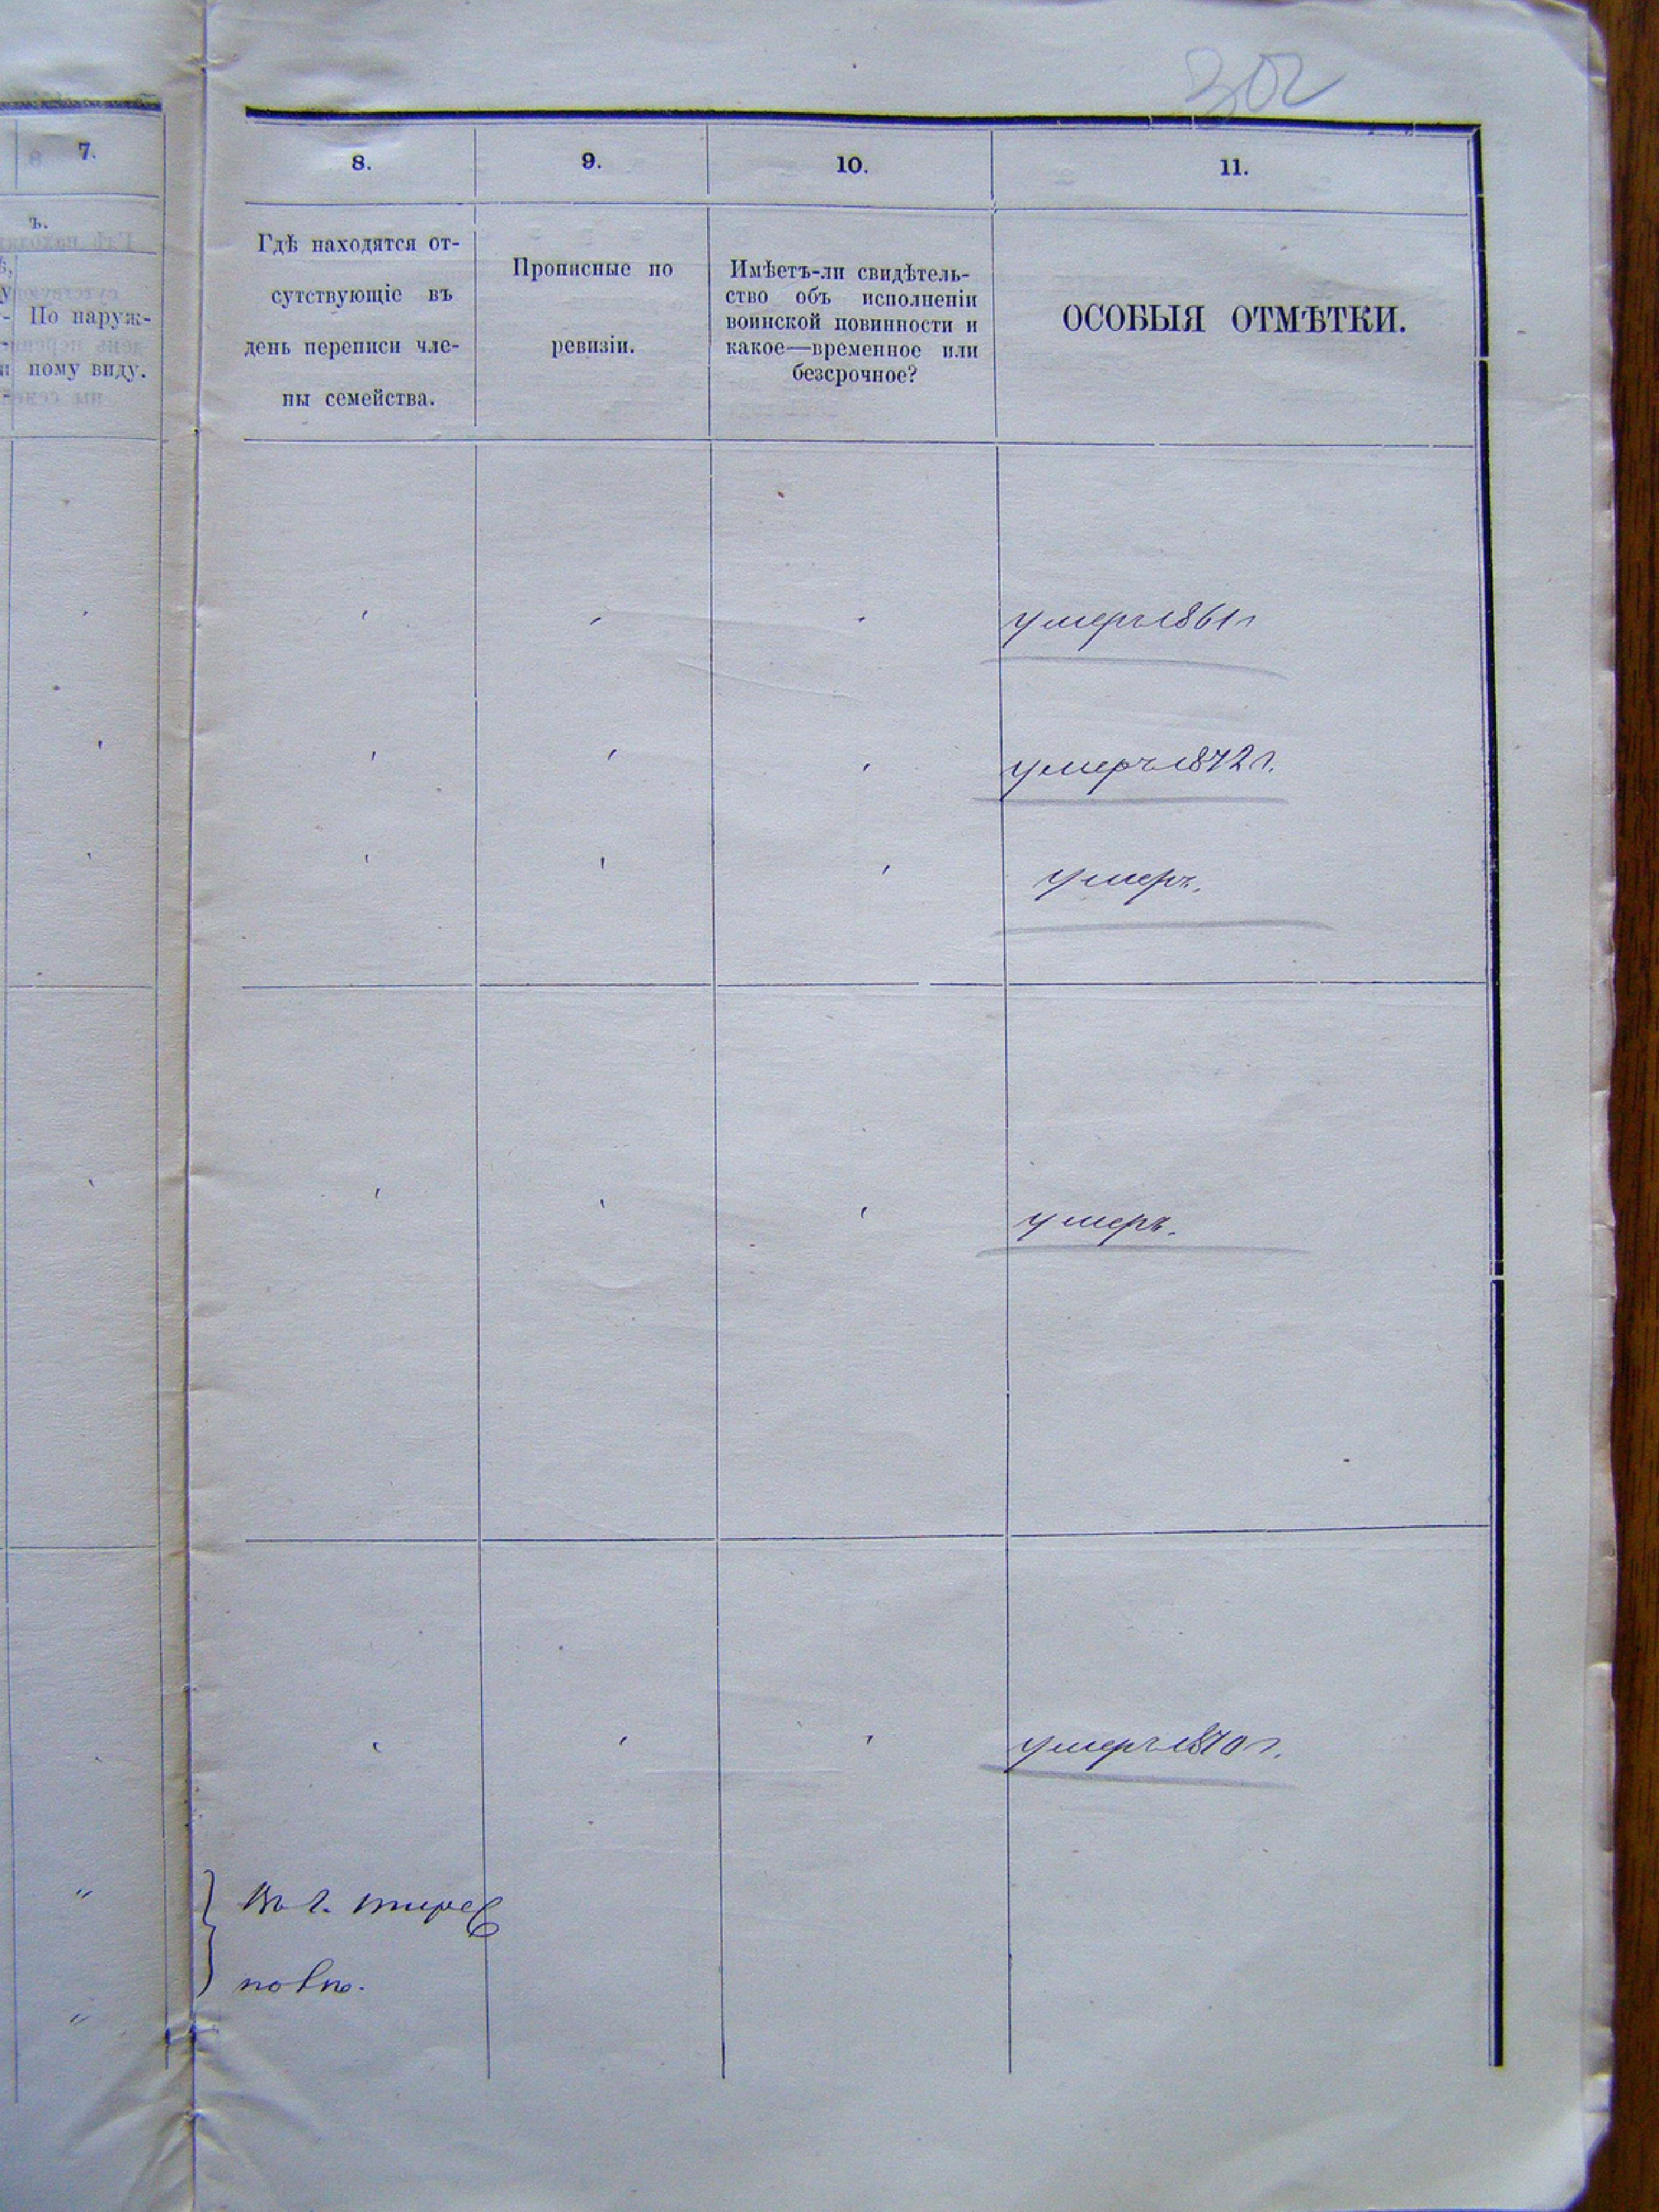 302
7.
8.
9.
10.
11.
ъ.
По наруж-
ному виду.
Гдѣ находятся от-
сутствующіе въ
день переписи чле-
ны семейства.
Прописные по
ревизіи.
Имѣетъ-ли свидѣтель-
ство объ исполненіи
воинской повинности и
какое—временное или
безсрочное?
ОСОБЫЯ ОТМѢТКИ.
умеръ 1861 г
умеръ 1872 г.
умеръ.
умеръ.
умеръ 1870 г.
Въ г. Тирас